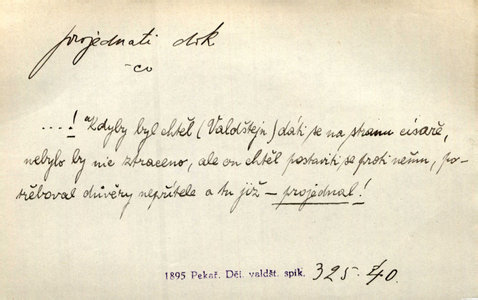 projednati dok
-co
....! "Kdyby byl chtěl (Valdštejn) dáti se na stranu císaře,
nebylo by nic ztraceno, ale on chtěl postaviti se proti němu, po-
třeboval důvěry nepřítele a tu již – projednal!
1895 Pekař. Děj. valdšt. spik. 325. 40.